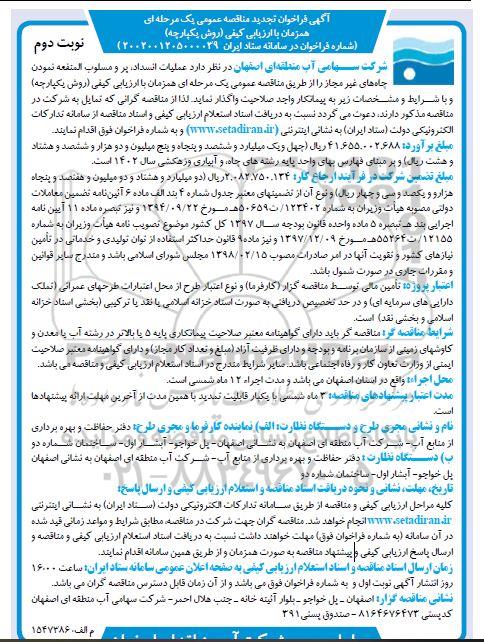 آگهی فراخوان تجدید مناقصه عمومی یک مرحله ای
همزمان با ارزیابی کیفی (روش یکپارچه)
(شماره فراخوان در سامانه ستاد ایران ۲۰۰۲۰۰۱۲۰۵۰۰۰۰۳۹)
نوبت دوم
شرکت سهامی آب منطقه‌ای اصفهان در نظر دارد عملیات انسداد، پر و مسلوب المنفعه نمودن
چاه‌های غیر مجاز را از طریق مناقصه عمومی یک مرحله ای همزمان با ارزیابی کیفی (روش یکپارچه)
و با شرایط و مشخصات زیر به پیمانکار واجد صلاحیت واگذار نماید. لذا از مناقصه گرانی که تمایل به شرکت در
مناقصه مذکور دارند، دعوت می گردد نسبت به دریافت اسناد استعلام ارزیابی کیفی و اسناد مناقصه از سامانه تدارکات
الکترونیکی دولت (ستاد ایران) به نشانی اینترنتی (www.setadiran.ir) و به شماره فراخوان فوق اقدام نمایند.
مبلغ برآورد: ۴۱.۶۵۵.۰۰۲.۶۸۸ ریال (چهل ویک میلیارد و ششصد و پنجاه و پنج میلیون و دو هزار و ششصد و هشتاد
و هشت ریال) و بر مبنای فهارس بهای واحد پایه رشته های چاه، و آبیاری وزهکشی سال ۱۴۰۲ است.
مبلغ تضمین شرکت در فرآیند ارجاع کار: ۲.۰۸۲.۷۵۰.۱۳۴ ریال (دو میلیارد و هشتاد و دو میلیون و هفتصد و پنجاه
هزارو و یکصد و سی و چهار ریال) و نوع آن از تضمینهای معتبر جدول شماره ۴ بند الف ماده ۶ آئین‌نامه تضمین معاملات
دولتی مصوبه هیأت وزیران به شماره ۱۲۳۴۰۲/ت۵۰۶۵۹هـ مورخ ۱۳۹۴/۰۹/۲۲ و نیز تبصره ماده ۱۱ آیین نامه
اجرایی بند هـ تبصره ۵ ماده واحده قانون بودجه سال ۱۳۹۷ کل کشور موضوع تصویب نامه هیأت وزیران به شماره
۱۲۱۵۵/ت۵۵۲۶۴هـ مورخ ۱۳۹۷/۱۲/۰۹ و نیز ماده۹ قانون حداکثر استفاده از توان تولیدی و خدماتی در تأمین
نیازهای کشور و تقویت آنها در امر صادرات مصوب ۱۳۹۸/۰۲/۱۵ مجلس شورای اسلامی باشد و مندرج سایر قوانین
و مقررات جاری در صورت شمول باشد.
اعتبار پروژه: تأمین مالی توسط مناقصه گزار (کارفرما) و نوع اعتبار طرح از محل اعتبارات طرحهای عمرانی (تملک
دارایی های سرمایه ای) و در حد تخصیص دریافتی به صورت اسناد خزانه اسلامی یا نقد یا ترکیبی (بخشی اسناد خزانه
اسلامی و بخشی نقد) است.
شرایط مناقصه گر: مناقصه گر باید دارای گواهینامه معتبر صلاحیت پیمانکاری پایه ۵ یا بالاتر در رشته آب یا معدن و
کاوشهای زمینی از سازمان برنامه و بودجه و دارای ظرفیت آزاد (مبلغ و تعداد کار مجاز) و دارای گواهینامه معتبر صلاحیت
ایمنی از وزارت تعاون کار و رفاه اجتماعی باشد. سایر شرایط مندرج در اسناد استعلام ارزیابی کیفی و مناقصه می باشد.
محل اجراء: واقع در استان اصفهان می باشد و مدت اجراء ۱۲ ماه شمسی است.
مدت اعتبار پیشنهادهای مناقصه: ۳ ماه شمسی با یکبار قابلیت تمدید با همین مدت از آخرین مهلت ارائه پیشنهادها
است.
نام و نشانی مجری طرح و دستگاه نظارت: الف) نماینده کارفرما و مجری طرح: دفتر حفاظت و بهره برداری
از منابع آب- شرکت آب منطقه ای اصفهان به نشانی اصفهان- پل خواجو- آبشار اول- ساختمان شماره دو
ب) دستگاه نظارت: دفتر حفاظت و بهره برداری از منابع آب- شرکت آب منطقه ای اصفهان به نشانی اصفهان
پل خواجو- آبشار اول- ساختمان شماره دو
تاریخ، مهلت، نشانی و نحوه دریافت اسناد مناقصه و استعلام ارزیابی کیفی و ارسال پاسخ:
کلیه مراحل ارزیابی کیفی و مناقصه از طریق سامانه تدارکات الکترونیکی دولت (ستاد ایران) به نشانی اینترنتی
www.setadiran.ir انجام خواهد شد. مناقصه گران جهت شرکت در مناقصه مطابق شرایط و مواعد زمانی قید شده
در آن سامانه (به شماره فراخوان فوق) مهلت خواهند داشت نسبت به دریافت اسناد استعلام ارزیابی کیفی و مناقصه و
ارسال پاسخ ارزیابی کیفی و پیشنهاد مناقصه به صورت همزمان و از طریق همین سامانه اقدام نمایند.
زمان ارسال اسناد مناقصه و اسناد استعلام ارزیابی کیفی به صفحه اعلان عمومی سامانه ستاد ایران: ساعت ۱۶:۰۰
روز انتشار آگهی نوبت اول و به شماره فراخوان فوق می باشد و از آن زمان قابل دسترس مناقصه گران می باشد.
نشانی مناقصه گزار: اصفهان - پل خواجو - بلوار آئینه خانه - جنب هلال احمر- شرکت سهامی آب منطقه ای اصفهان
کدپستی ۸۱۶۴۶۷۶۴۷۳ - صندوق پستی ۳۹۱
م الف: ۱۵۴۷۳۸۶